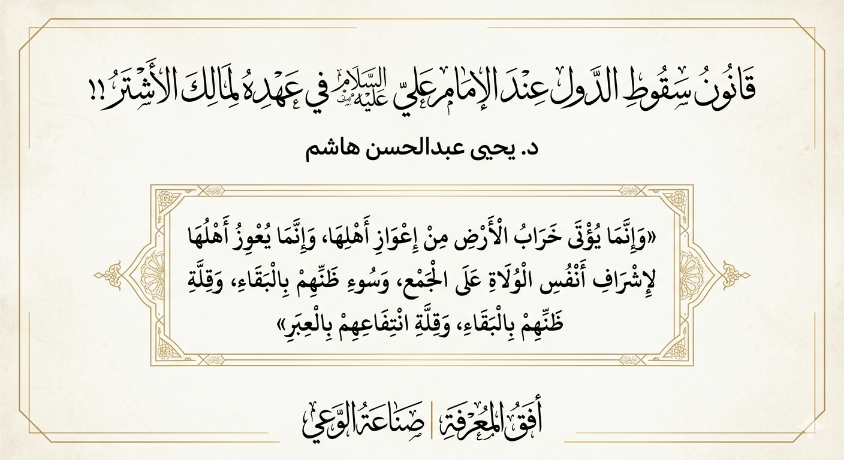 قَانُونُ سَقُوطِ الدَّولِ عِنْدَ الإِمَامِ عَلِيّ عَلَيْهِ السَّلَامِ فِي عَهْدِهُ لِمَالِكَ الأَشْتَرُ!!
د. يحيى عبدالحسن هاشم
«وَإِنَّمَا يُؤْتَى خَرَابُ الْأَرْضِ مِنْ إِعْوَازِ أَهْلِهَا، وَإِنَّمَا يُعْوِزُ أَهْلُهَا
لِإِشْرَافِ أَنْفُسِ الْوُلَاةِ عَلَى الْجَمْعِ، وَسُوءِ ظَنِّهِمْ بِالْبَقَاءِ، وَقِلَّةِ
ظَنِّهِمْ بِالْبَقَاءِ، وَقِلَّةِ انْتِفَاعِهِمْ بِالْعِبَرِ»
أفُقُ المَعْرْفَةِ | صَنَاعَةُ الوَعي